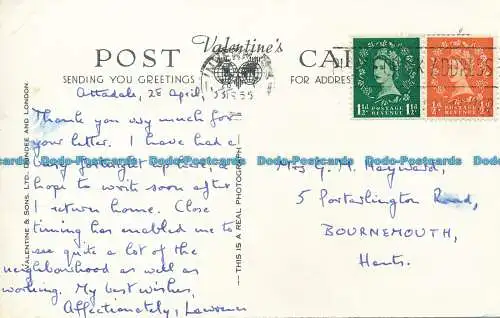 POST Valentine's CARD
SENDING YOU GREETINGS
FOR ADDRESS
Attadale, 28 April,
Thank you very much for
your letter. I have had a
busy fortnight up here,
hope to write soon after
I return home. Close
timing has enabled me to
see quite a lot of the
neighbourhood as well as
working. My best wishes,
Affectionately, Lawrence
VALENTINE & SONS. LTD. DUNDEE AND LONDON.
THIS IS A REAL PHOTOGRAPH
1½d POSTAGE REVENUE 1½d
½d POSTAGE REVENUE ½d
Mrs G. M. Hayward,
5 Portarlington Road,
BOURNEMOUTH,
Hants.
Dodo-Postcards Dodo-Postcards Dodo-Postcards Dodo-Postcards Dodo-Postcards